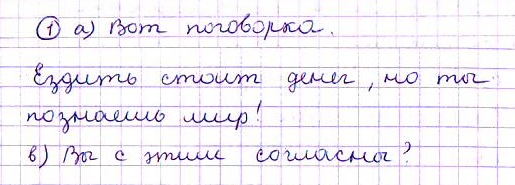 ① а) Вот поговорка.
Ездить стоит денег, но ты
познаешь мир!
в) Вы с этим согласны?